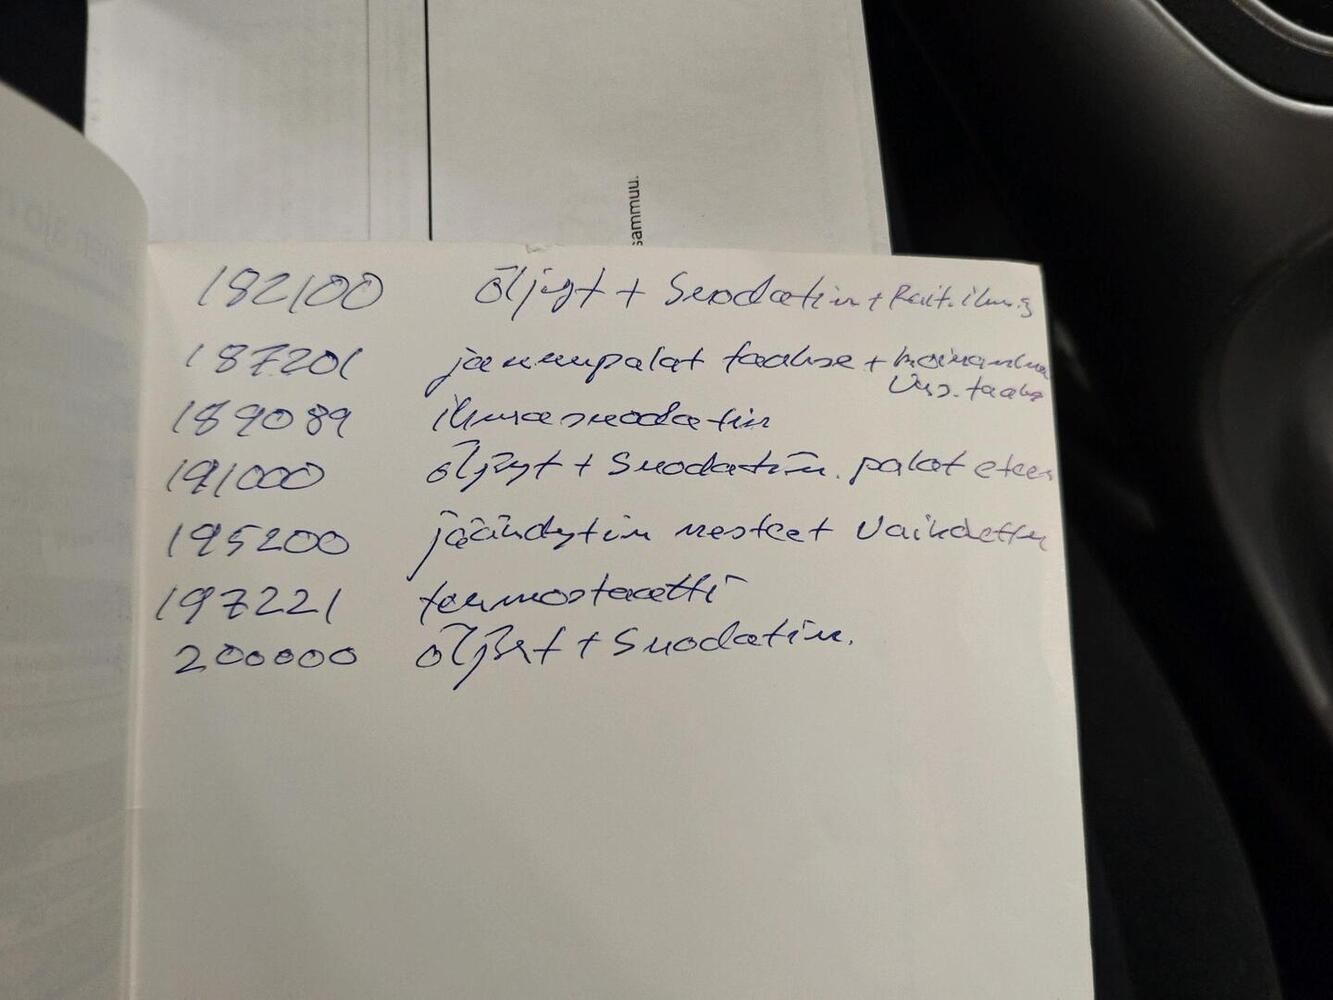 sammuu.
182100 öljyt + Suodatin + Rait.ilm.s
187201 jarrupalat taakse + koiranluu
Vas. taakse
189089 ilmasuodatin
191000 öljyt + Suodatin. palat eteen
195200 jäähdytin nesteet Vaihdettu
197221 termostaatti
200000 öljyt + Suodatin.